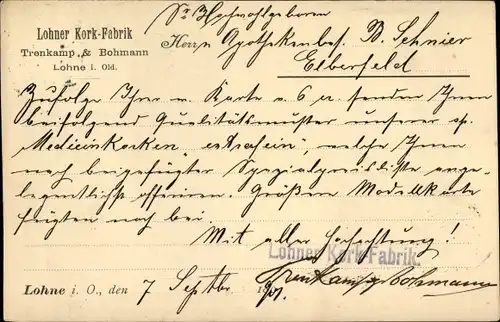 Lohner Kork-Fabrik
Trenkamp & Bohmann
Lohne i. Old.
Sr Hochwohlgeboren
Herrn Apothekenbes. B. Schnier
Elberfeld
Zufolge Ihrer w. Karte v. 6 cr. senden Ihnen
beifolgend Qualitätsmuster unserer sp.
Medicinkorken, extrafein, welche Ihnen
nach beigefügter Spezialpreisliste ange-
legentlichst offeriren. Größen Modellkarte
fügten noch bei.
Mit aller Hochachtung!
Lohner Kork-Fabrik
Trenkamp & Bohmann
Lohne i. O., den 7 Septbr. 1901.